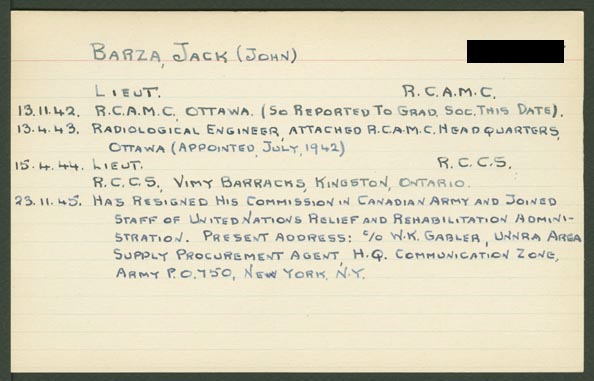 BARZA, JACK (JOHN)
LIEUT. R.C.A.M.C.
13.11.42. R.C.A.M.C, OTTAWA. (SO REPORTED TO GRAD. SOC. THIS DATE).
13.4.43. RADIOLOGICAL ENGINEER, ATTACHED R.C.A.M.C. HEADQUARTERS,
OTTAWA (APPOINTED, JULY, 1942)
15.4.44. LIEUT. R.C.C.S.
R.C.C.S., VIMY BARRACKS, KINGSTON, ONTARIO.
23.11.45. HAS RESIGNED HIS COMMISSION IN CANADIAN ARMY AND JOINED
STAFF OF UNITED NATIONS RELIEF AND REHABILITATION ADMINI-
STRATION. PRESENT ADDRESS: c/o W.K. GABLER, UNNRA AREA
SUPPLY PROCUREMENT AGENT, H.Q. COMMUNICATION ZONE,
ARMY P.O. 750, NEW YORK, N.Y.